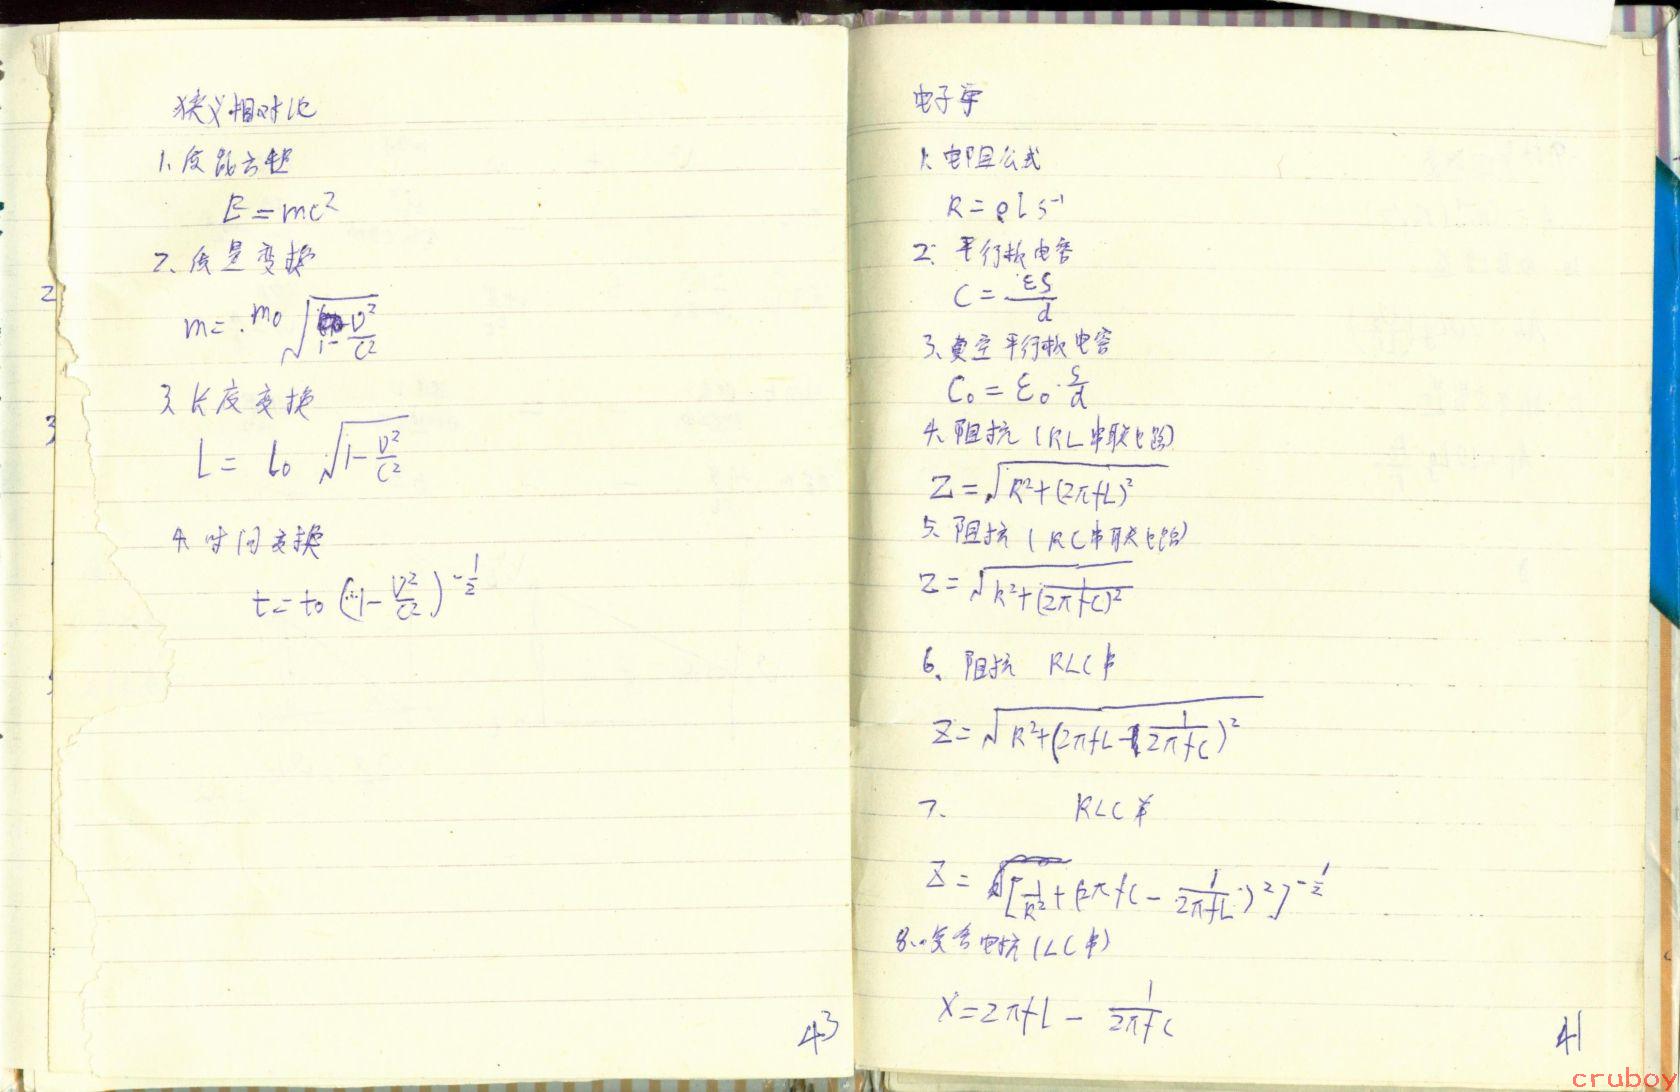 狭义相对论
1. 质能方程
E=mc²
2、质量变换
m=m₀√(1-v²/c²)
3、长度变换
L= L₀ √(1-v²/c²)
4. 时间变换
t=t₀(1-v²/c²)^(-1/2)
43
2
3
电子学
1. 电阻公式
R=ρLS⁻¹
2. 平行板电容
C=εS/d
3、真空平行板电容
C₀=ε₀·S/d
4、阻抗(RL串联电路)
Z=√(R²+(2πfL)²)
5、阻抗(RC串联电路)
Z=√(R²+(1/(2πfC))²)
6、阻抗 RLC串
Z=√(R²+(2πfL-1/(2πfC))²)
7、 RLC并
Z=[1/R²+(2πfC-1/(2πfL))²]^(-1/2)
8、复合电抗(LC串)
X=2πfL-1/(2πfC)
41
cruboy